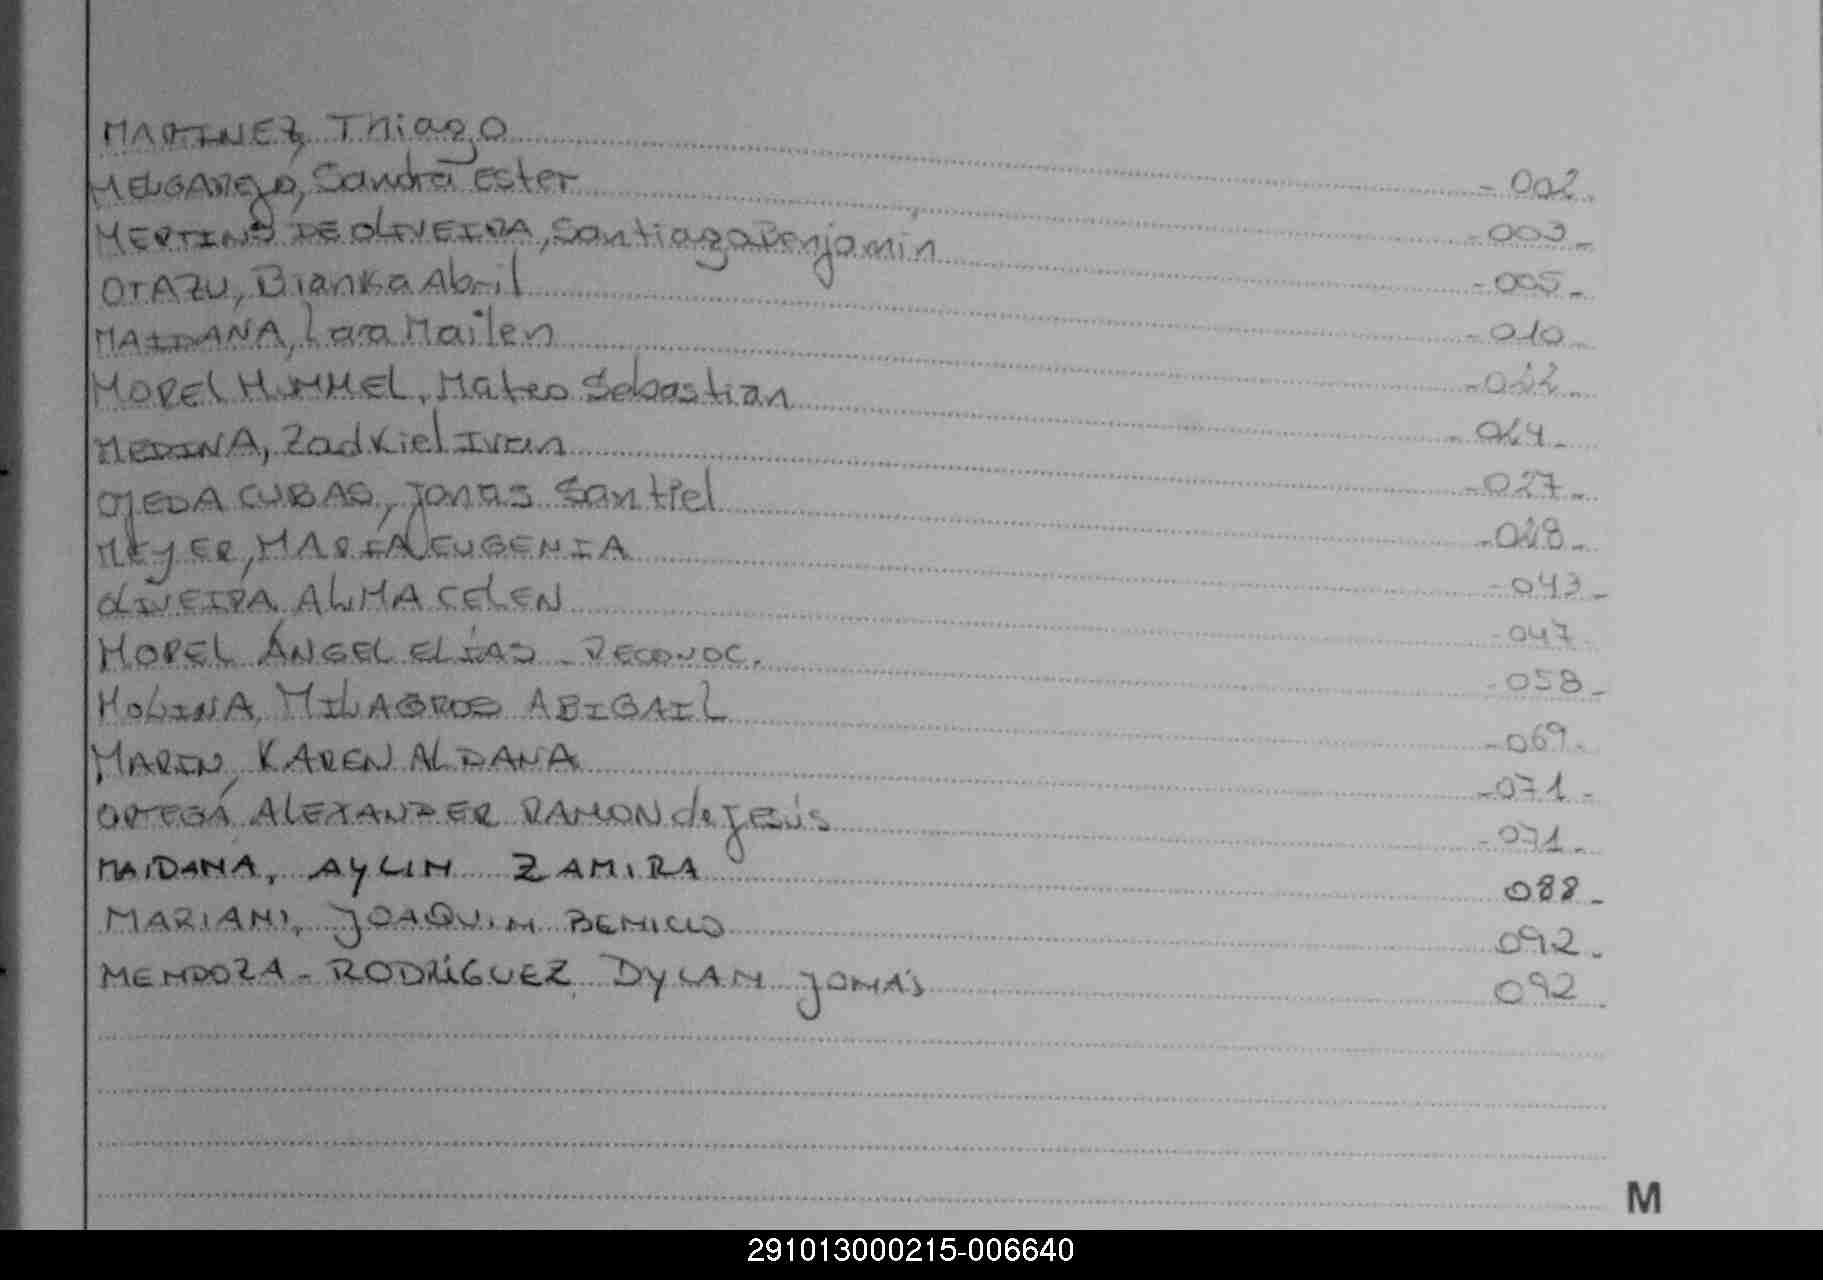 MARTINEZ, Thiago - 002.
MELGAREJO, Sandra Ester - 003 -
MERTINS DE OLIVEIRA, Santiago Benjamin - 005 -
OTAZU, Bianka Abril - 010 -
MAIDANA, Lara Mailen - 022 -
MOREL HUMMEL, Mateo Sebastian - 024 -
MEDINA, Zadkiel Ivan - 027 -
OJEDA CUBAS, Jonas Santiel - 028 -
MEYER, MARIA EUGENIA - 043 -
OLIVEIRA, ALMA CELEN - 047 -
MOREL ÁNGEL ELÍAS - RECONOC. - 058 -
MOLINA, MILAGROS ABIGAIL - 069 -
MARIN, KAREN ALDANA - 071 -
ORTEGA, ALEXANDER RAMON de JESÚS - 071 -
MAIDANA, AYLIN ZAMIRA 088 -
MARIANI, JOAQUIN BENICIO 092 -
MENDOZA - RODRÍGUEZ, DYLAN JONÁS 092 -
M
291013000215-006640